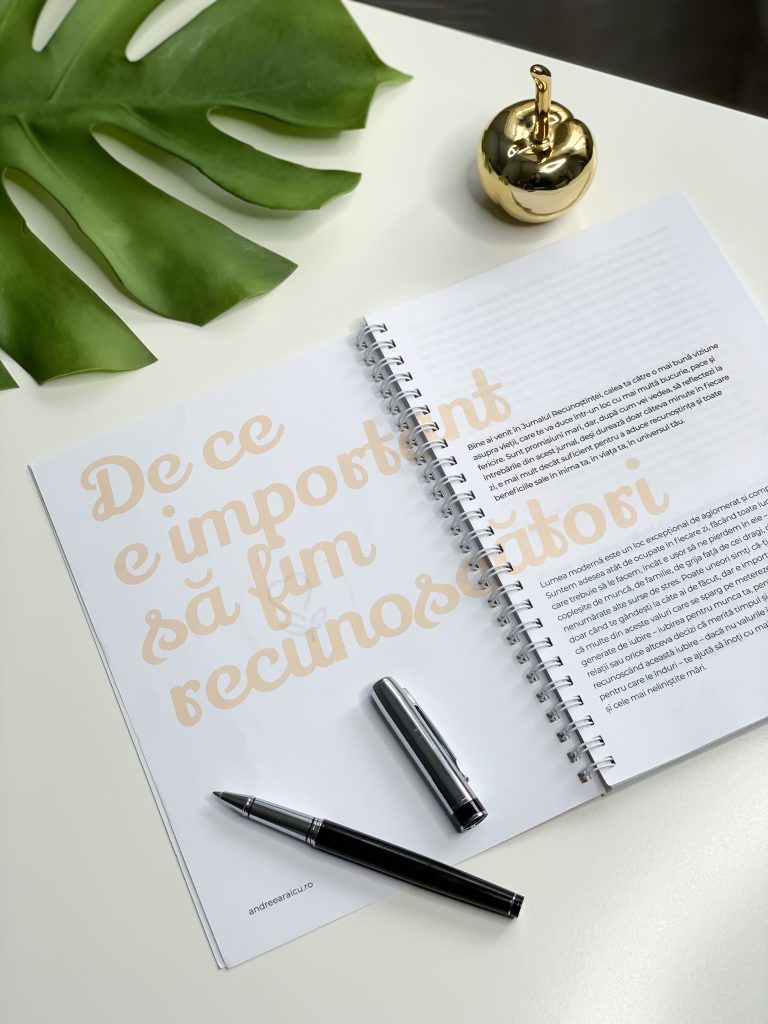 De ce
e important
să fim
recunoscători
andreearaicu.ro
Bine ai venit în Jurnalul Recunoștinței, calea ta către o mai bună viziune
asupra vieții, care te va duce într-un loc cu mai multă bucurie, pace și
fericire. Sunt promisiuni mari, dar, după cum vei vedea, să reflectezi la
întrebările din acest jurnal, deși durează doar câteva minute în fiecare
zi, e mai mult decât suficient pentru a aduce recunoștința și toate
beneficiile sale în inima ta, în viața ta, în universul tău.
Lumea modernă este un loc excepțional de aglomerat și
Suntem adesea atât de ocupate în fiecare zi, făcând toate
care trebuie să le facem, încât e ușor să ne pierdem în ele –
copleșite de muncă, de familie, de grija față de cei dragi,
nenumărate alte surse de stres. Poate uneori simți
doar când te gândești la câte ai de făcut, dar e
că multe din aceste valuri care se sparg pe
generate de iubire – iubirea pentru munca ta,
relații sau orice altceva decizi că merită timpul
recunoscând această iubire – dacă nu valurile
pentru care le înduri – te ajută să înoți cu
și cele mai neliniștite mări.